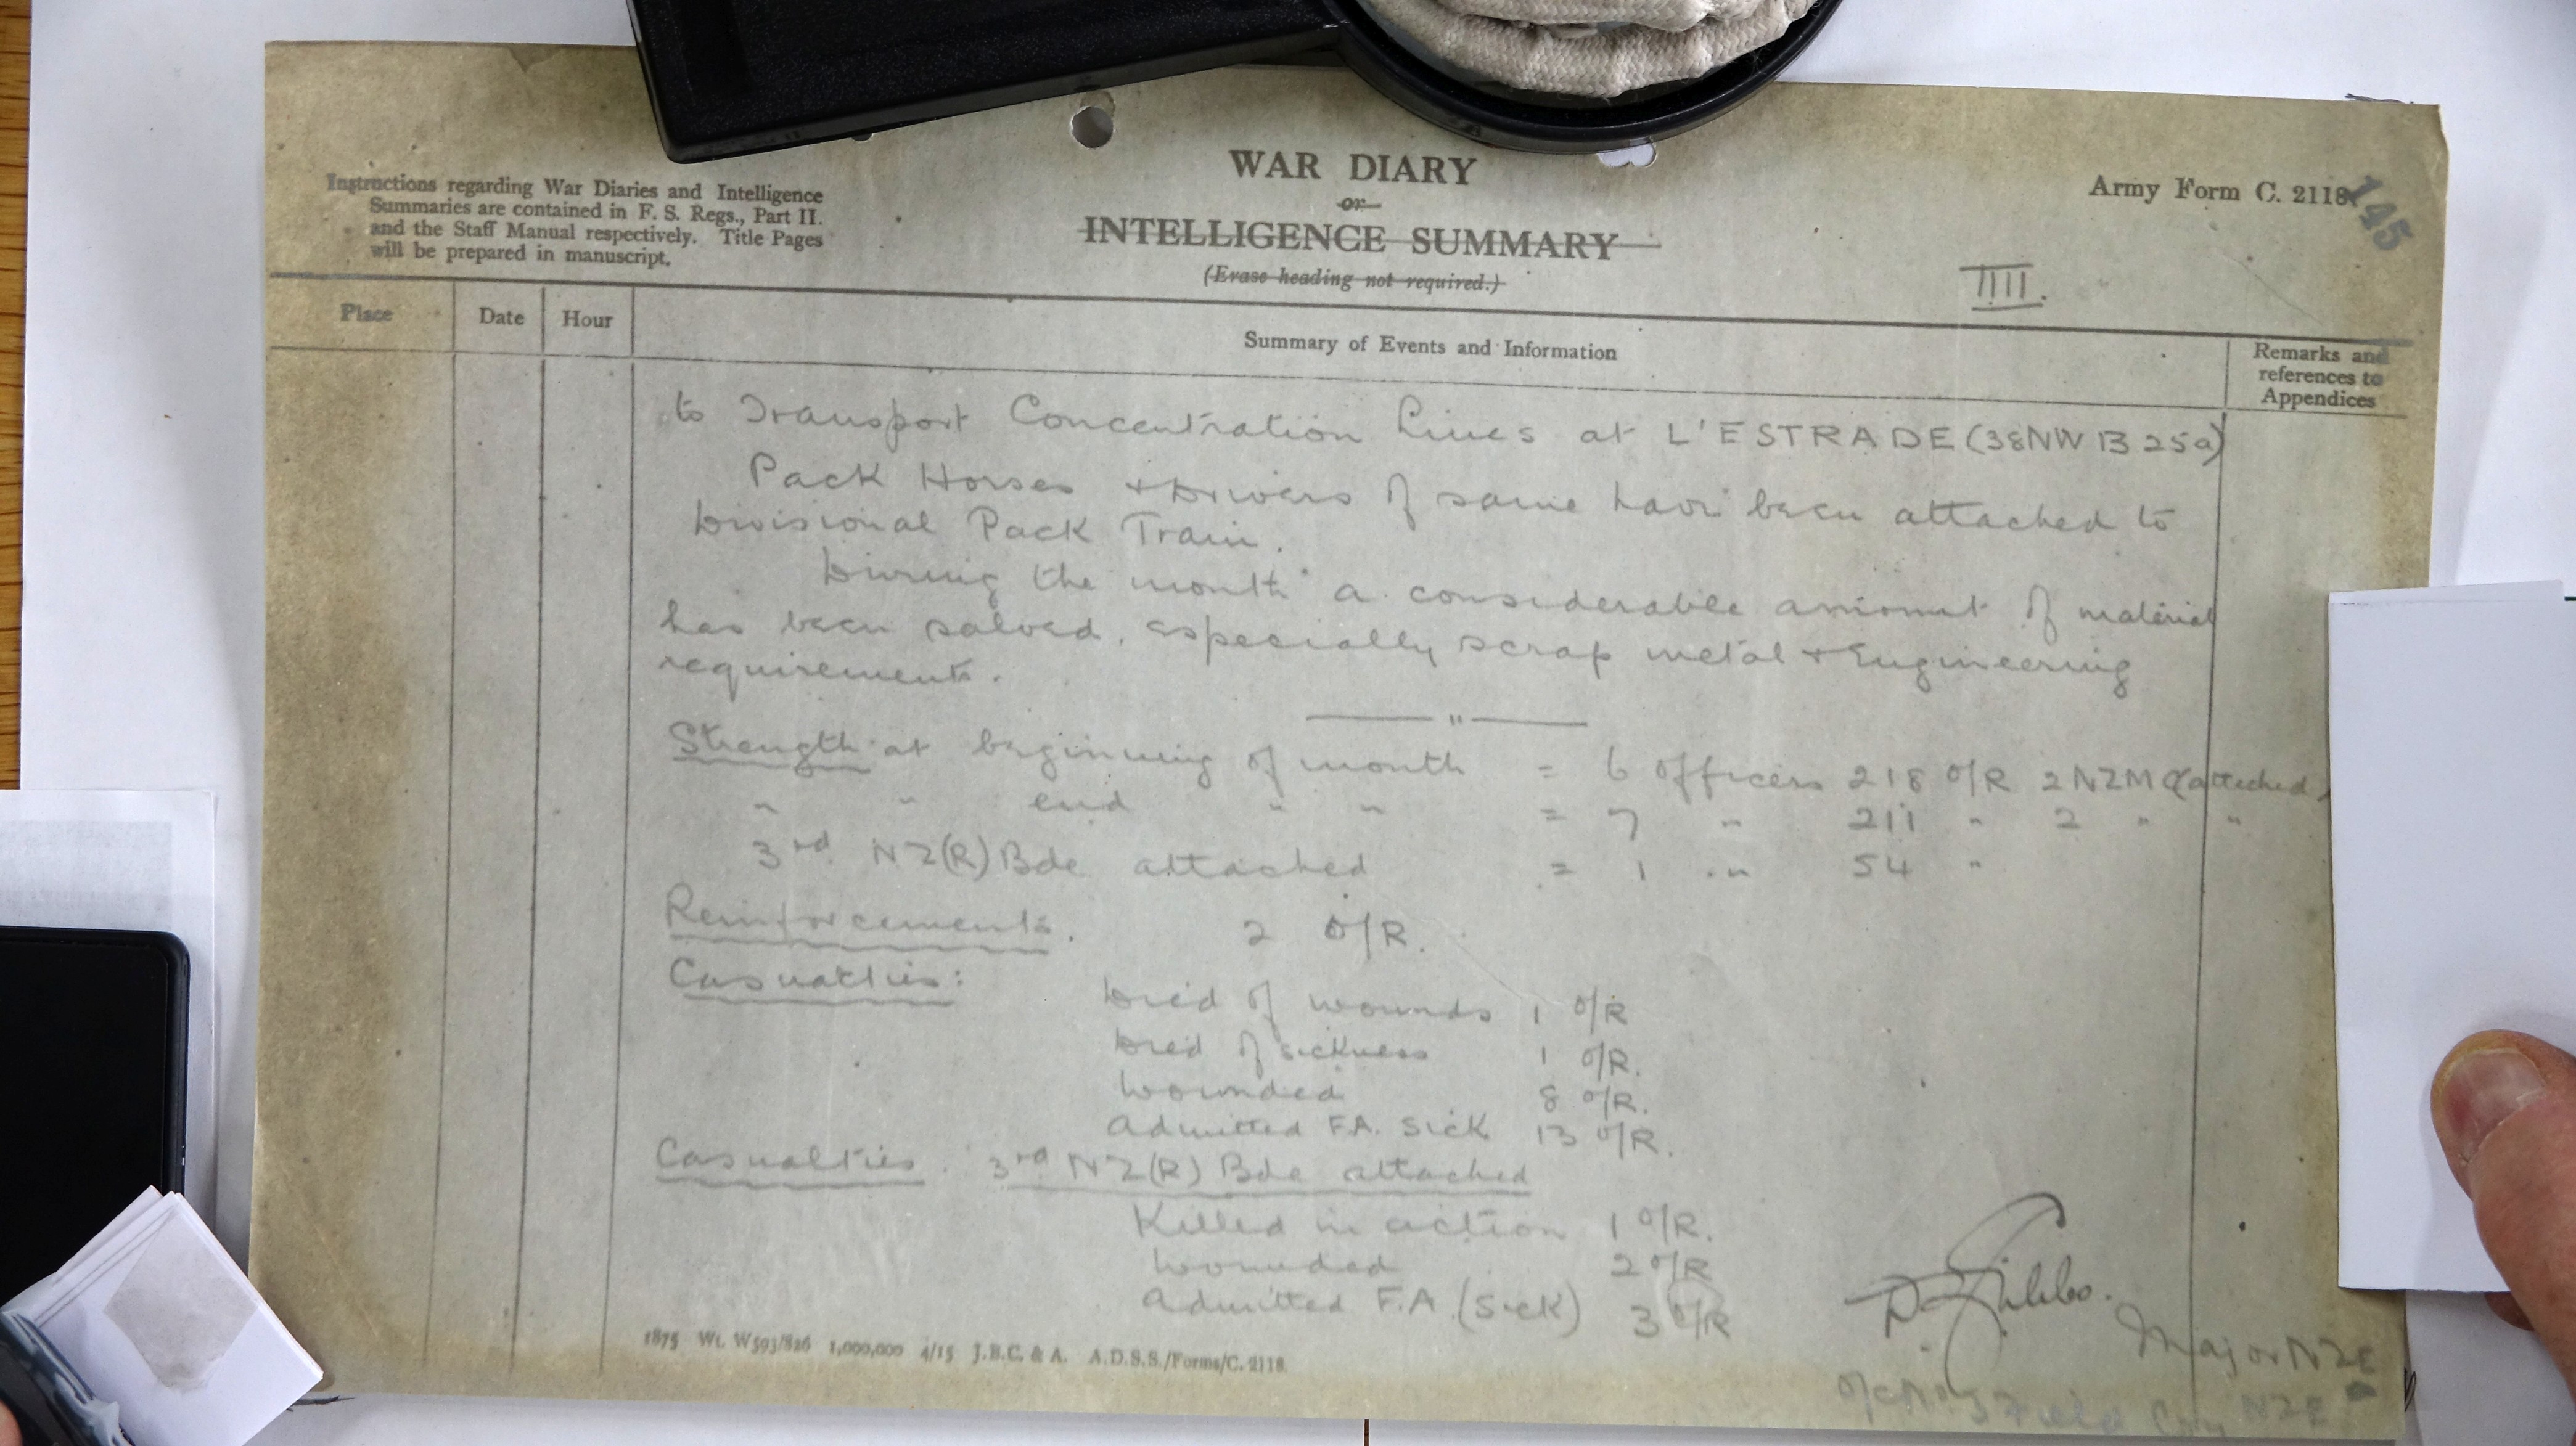 Instructions regarding War Diaries and Intelligence
Summaries are contained in F. S. Regs., Part II.
and the Staff Manual respectively. Title Pages
will be prepared in manuscript.
WAR DIARY
or
INTELLIGENCE SUMMARY
(Erase heading not required.)
Army Form C. 2118
145
IIII.
Place
Date
Hour
Summary of Events and Information
Remarks and
references to
Appendices
to Transport Concentration Lines at L'ESTRADE (38NW B 25a)
Pack Horses + Drivers of same have been attached to
Divisional Pack Train.
During the month a considerable amount of material
has been salved, especially scrap metal + Engineering
requirements.
— " —
Strength at beginning of month = 6 officers 218 O/R 2 NZMC (attached)
" " end " " = 7 " 211 " 2 " "
3rd NZ(R) Bde attached = 1 " 54 "
Reinforcements. 2 O/R.
Casualties:
Died of wounds 1 O/R
Died of sickness 1 O/R.
Wounded 8 O/R.
Admitted F.A. Sick 13 O/R.
Casualties. 3rd NZ(R) Bde attached
Killed in action 1 O/R.
Wounded 2 O/R
Admitted F.A. (Sick) 3 O/R
Gibbs.
Major NZE
O/C No 3 Field Coy NZE
1875 Wt. W593/826 1,000,000 4/15 J.B.C. & A. A.D.S.S./Forms/C. 2118.